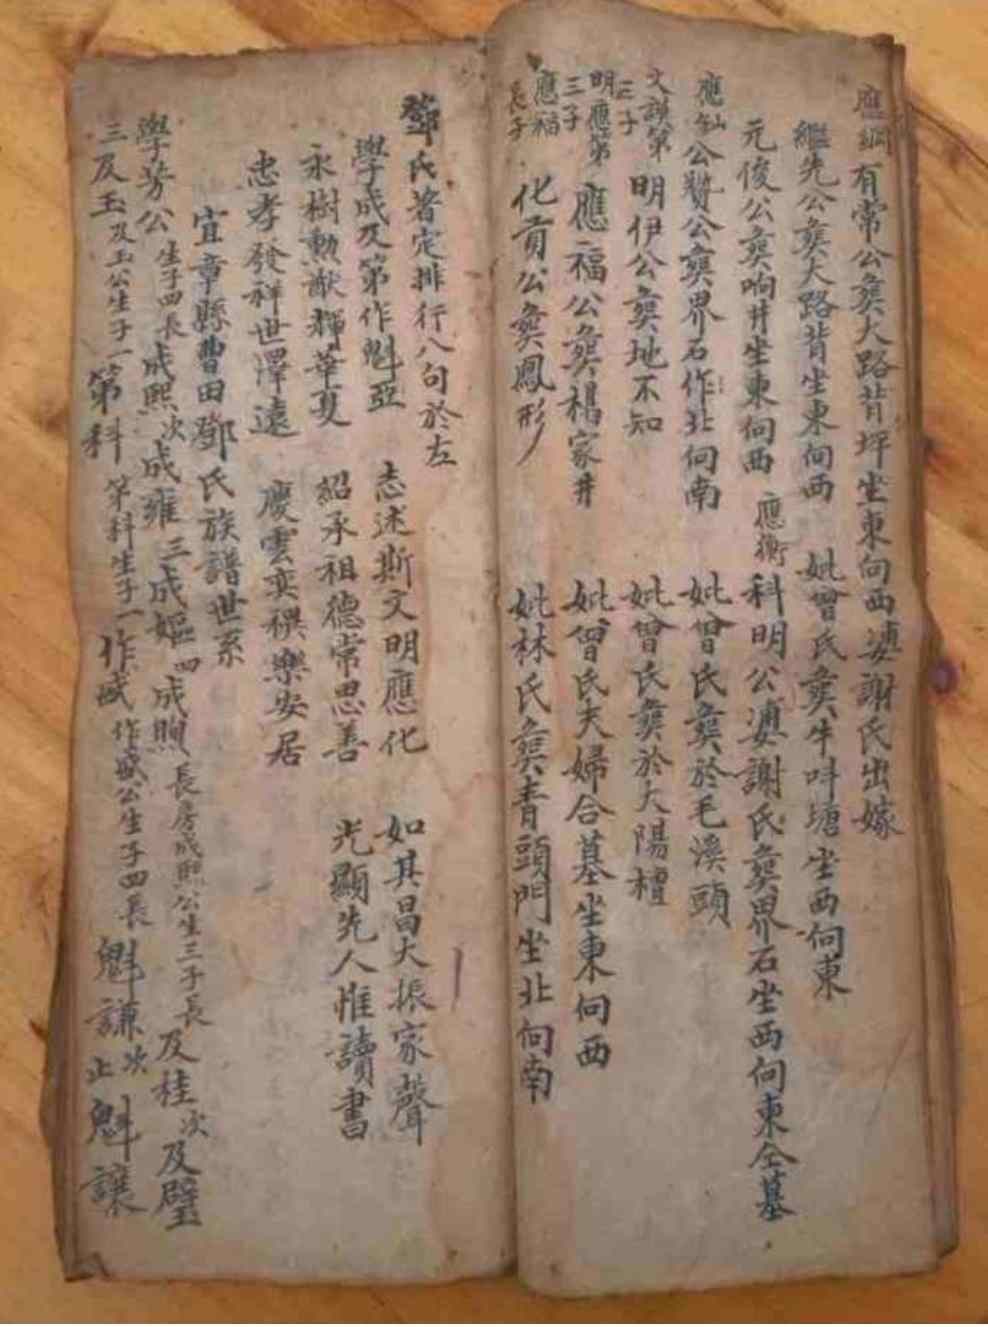 應綱有常公葬大路背坪坐東向西 婆謝氏出嫁
繼先公葬大路背坐東向西 妣曾氏葬牛吽塘坐西向東
元俊公葬响井坐東向西 應衡 科明公婆謝氏葬界石坐西向東仝墓
應仙 公贊公葬界石作北向南 妣曾氏葬於毛溪頭
文謨第三子 明伊公葬地不知 妣曾氏葬於大陽檀
明應第三子 應福公葬楊家井 妣曾氏夫婦合墓坐東向西
應福長子 化育公葬鳳形 妣林氏葬青頭門坐北向南
鄧氏著定排行八句於左
學成及第作魁亞 志述斯文明應化 如其昌大振家聲
永樹勳猷輝華夏 紹承祖德常思善 光顯先人惟讀書
忠孝發祥世澤遠 慶雲奕禩樂安居
宜章縣曹田鄧氏族譜世系
學芳公生子四長成熙次成雍三成嫗四成煦 長房成熙公生三子長及桂次及璧
三及玉及玉公生子一第科第科生子一作咸作盛公生子四長魁謙次魁讓止